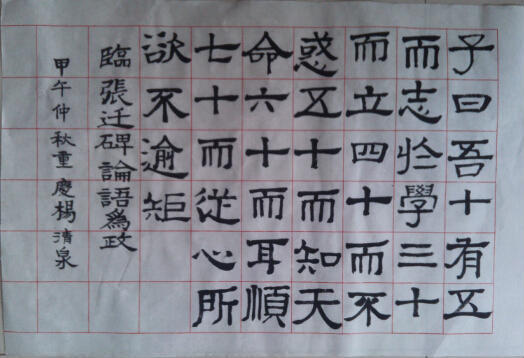 子曰吾十有五
而志於學三十
而立四十而不
惑五十而知天
命六十而耳順
七十而從心所
欲不逾矩
臨張迁碑論語爲政
甲午仲秋重慶楊清泉